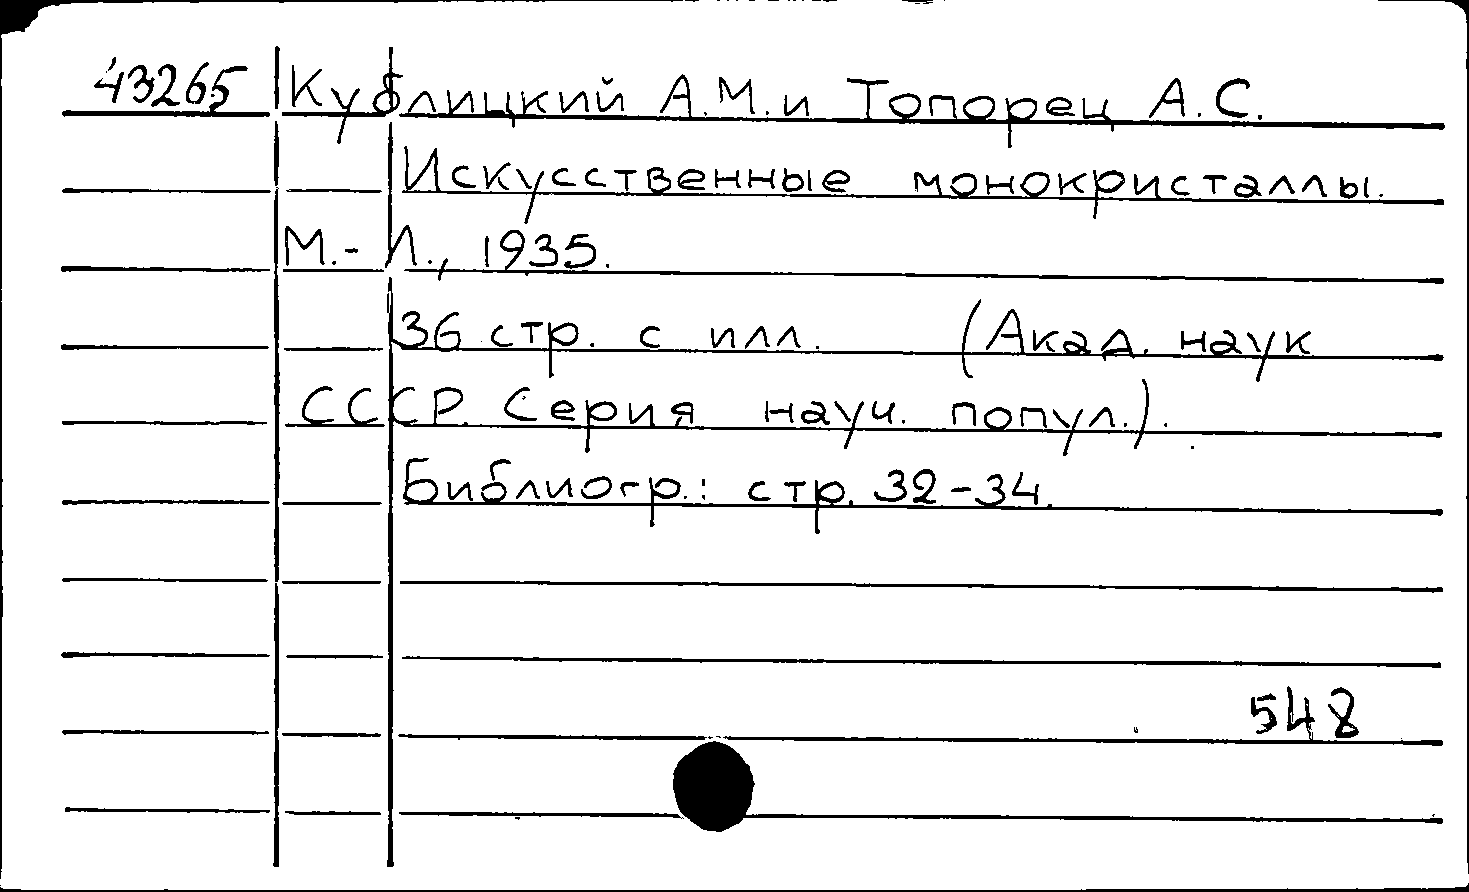 43265 Кублицкий А.М. и Топорец А.С.
Искусственные монокристаллы.
М.-Л., 1935.
36 стр. с илл. (Акад. наук
СССР. Серия науч. попул.).
Библиогр.: стр. 32-34.
548